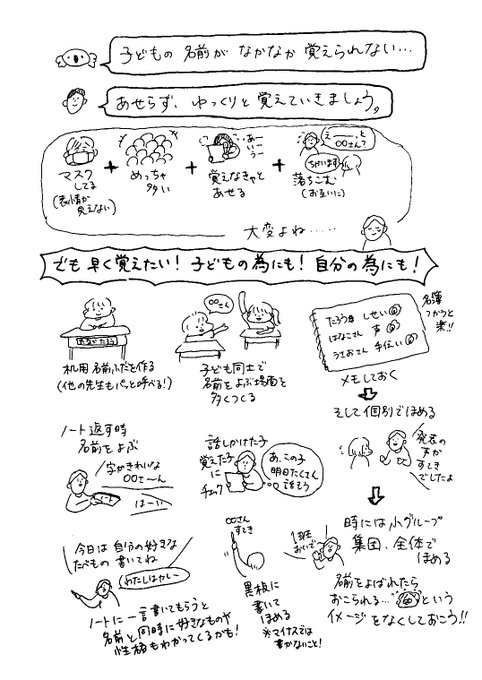 子どもの 名前が なかなか 覚えられない…
あせらず、ゆっくりと 覚えていきましょう。
マスク
してる
(表情が
見えない)
+
めっちゃ
多い
+
あー
いー
うー
覚えなきゃと
あせる
+
えーー、と
〇〇さん?
ちがいます
落ちこむ
(お互いに)
大変よね……
でも 早く覚えたい! 子どもの為にも! 自分の為にも!
机用 名前ふだを作る
(他の先生もパッと呼べる!)
〇〇さん
子ども同士で
名前をよぶ場面を
多くつくる
たろう君 しせい◎
はなこさん 声◎
うえおさん 手伝い◎
名簿
つかうと
楽!!
メモしておく
そして個別でほめる
発表の
声が
すてき
でしたよ
ノート返す時
名前をよぶ
字がきれいな
〇〇さ〜ん
ノート
はーい
話しかけた子
覚えた子
に
チェック
あ、この子
明日たくさん
話そう
時には小グループ
集団、全体で
ほめる
1班
おいで
名前をよばれたら
おこられる…という
イメージをなくしておこう!!
今日は 自分の好きな
たべもの 書いてね
わたしはカレー
ノートに一言書いてもらうと
名前と同時に好きなものや
性格もわかってくるかも!
〇〇さん
すてき
黒板に
書いて
ほめる
※マイナスでは
書かないこと!